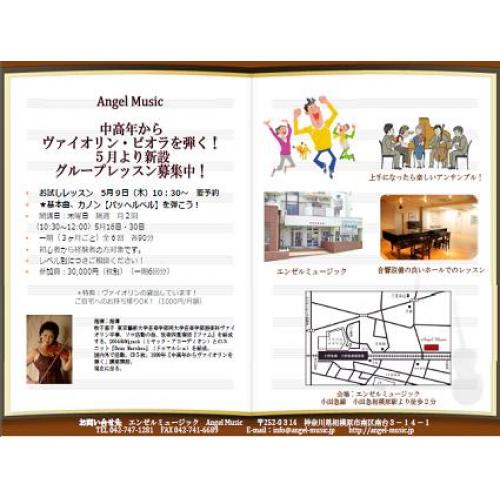 Angel Music
中高年から
ヴァイオリン・ビオラを弾く！
５月より新設
グループレッスン募集中！
お試しレッスン　５月９日（木）１０：３０～　要予約
★基本曲、カノン【パッヘルベル】を弾こう！
開講日：木曜日　隔週　月２回
（10:30～12:00）5月16日・30日
一期（３ヶ月ごと）全６回　各90分
初心者から経験者の方対象です。
レベル別につきご相談ください！
参加費：30,000円（税別）（一期6回分）
＊特典：ヴァイオリンの貸出しています！
ご自宅へのお持ち帰りOK！（1000円/月額）
上手になったら楽しいアンサンブル！
エンゼルミュージック
音響設備の良いホールでのレッスン
Angel Music
会場：エンゼルミュージック
小田急線　小田急相模原駅より徒歩２分
お問い合せ先　エンゼルミュージック　Angel Music　〒252-0314　神奈川県相模原市南区南台３－１４－１
TEL 042-747-1281　FAX 042-741-6689　E-mail：info@angel-music.jp　http://angel-music.jp